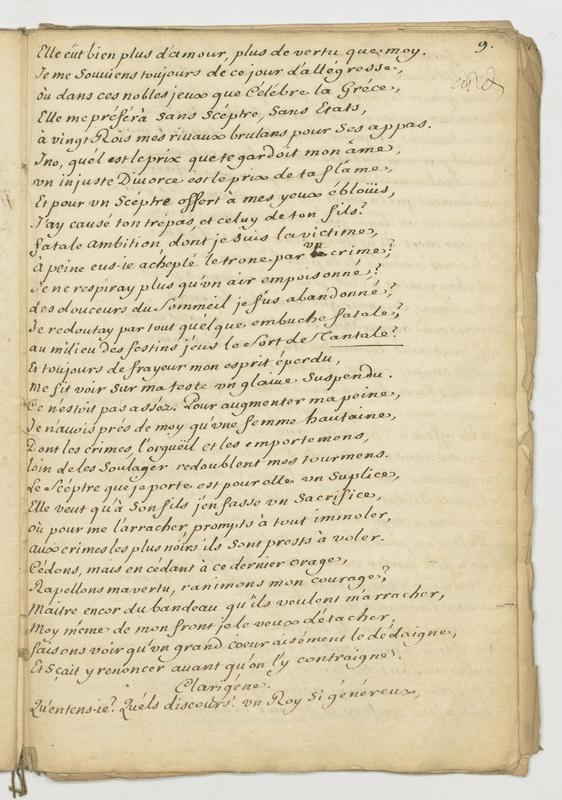 9.
Elle eût bien plus d'amour, plus de vertu que moy.
Je me souuiens toujours de ce jour d'allégresse,
où dans ces nobles jeux que Célébre la Gréce,
Elle me préféra sans Scéptre, sans Etats,
à vingt Rois mes riuaux brulans pour ses appas.
Ino, quel est le prix que te gardoit mon âme,
un injuste Diuorce est le prix de ta flâme,
Et pour un Scéptre offert à mes yeux éblouïs,
J'ay causé ton trépas, et celuy de ton fils?
fatale ambition, dont je suis la victime,
à peine eus-ie achepté le trone par un crime,?
Je ne respiray plus qu'un air empoisonné,?
des douceurs du Sommeil je fus abandonné,?
Je redoutay par tout quelque embuche fatale,?
au milieu des festins j'eus le sort de Tantale?
Et toujours de frayeur mon esprit éperdu,
me fit voir sur ma teste un glaiue suspendu.
Ce n'estoit pas assez. Pour augmenter ma peine,
Je n'auois prés de moy qu'une femme hautaine,
Dont les crimes, l'orgueil et les emportemens,
loin de les soulager redoublent mes tourmens.
Le Scéptre que je porte est pour elle un suplice,
Elle veut qu'à son fils j'en fasse un sacrifice,
où pour me l'arracher, prompts à tout immoler,
aux crimes les plus noirs ils sont prests à voler.
Cédons, mais en cédant à ce dernier orage,
Rapellons ma vertu, ranimons mon courage,?
Maitre encor du bandeau qu'ils veulent m'arracher,
Moy même de mon front je le veux détacher,
faisons voir qu'un grand coeur aisément le dédaigne,
Et scait y renoncer auant qu'on l'y contraigne.
Clarigéne.
Qu'entens-ie? Quéls discours! un Roy si généreux,